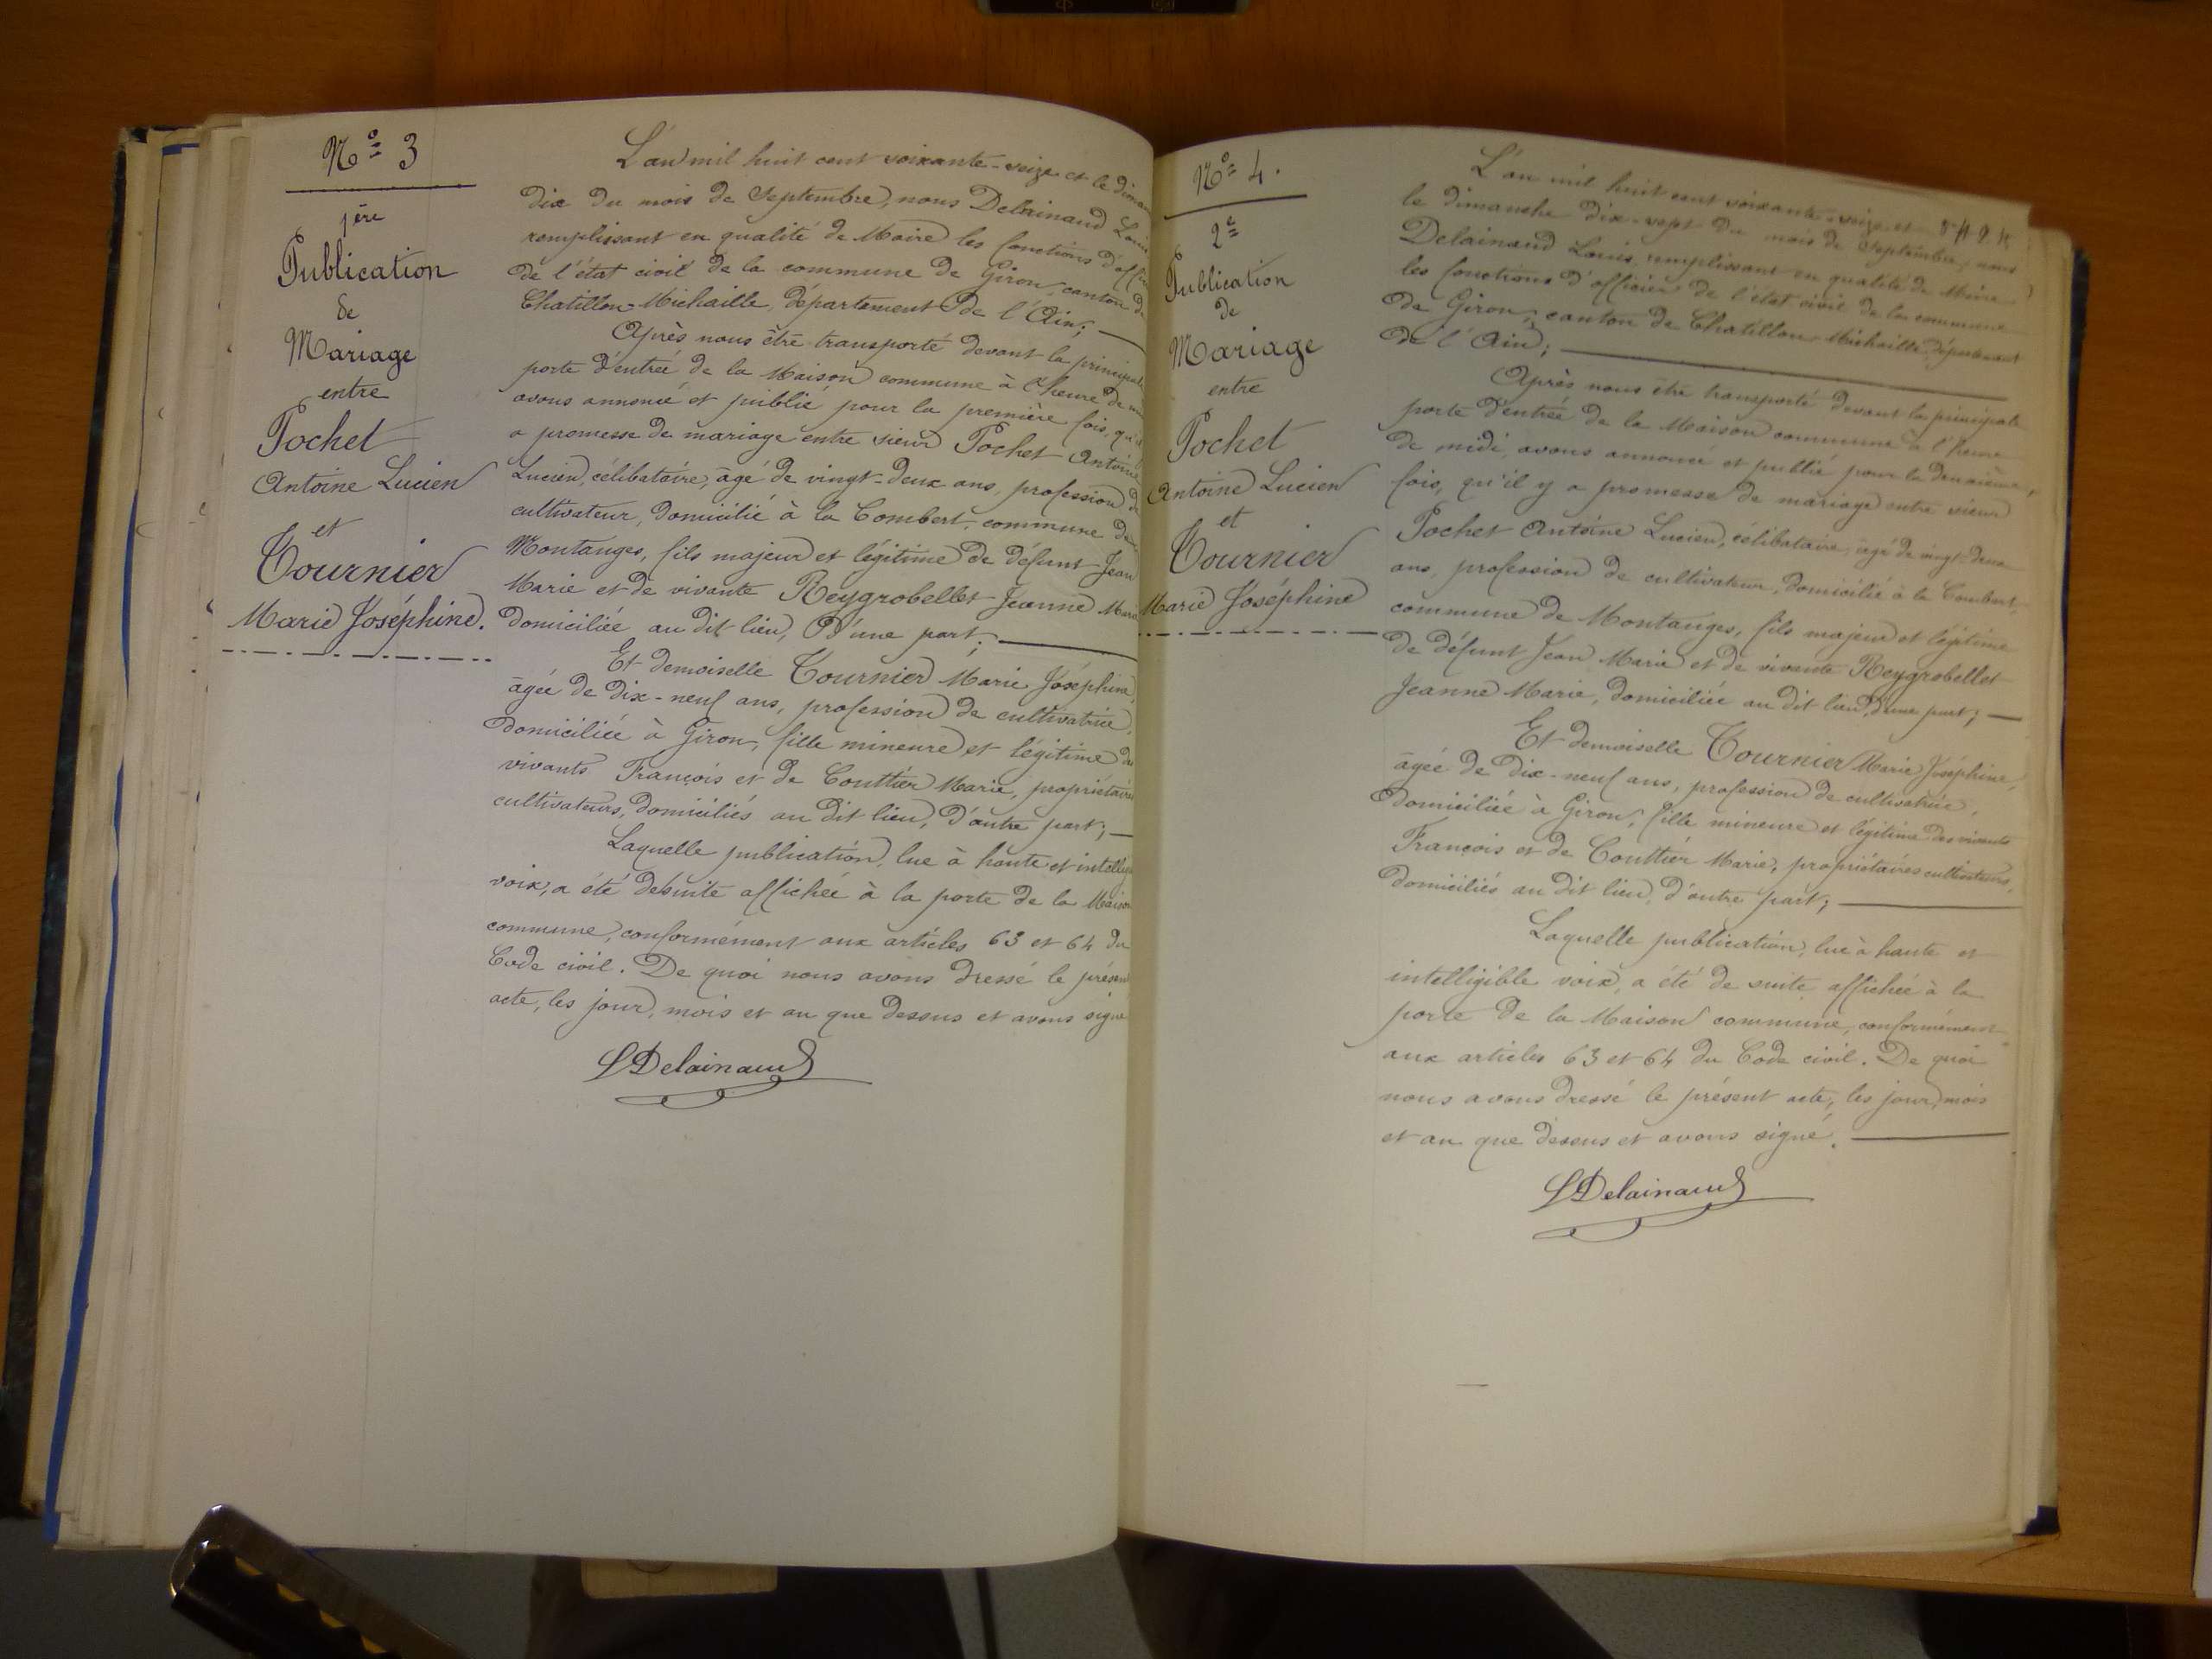 Nº 3
1ère
Publication
de
Mariage
entre
Pochet
Antoine Lucien
et
Tournier
Marie Joséphine.
L'an mil huit cent soixante-seize et le
dix du mois de Septembre, nous Delainaud Louis
remplissant en qualité de Maire les fonctions
de l'état civil de la commune de Giron, canton de
Chatillon-Michaille, département de l'Ain;
Après nous être transporté devant la principale
porte d'entrée de la Maison commune à l'heure de
avons annoncé et publié pour la première fois,
a promesse de mariage entre sieur Pochet Antoine
Lucien, célibataire, âgé de vingt-deux ans, profession de
cultivateur, domicilié à la Combert, commune de
Montanges, fils majeur et légitime de défunt Jean
Marie et de vivante Reygrobellet Jeanne Marie
domiciliée au dit lieu, D'une part;
Et demoiselle Tournier Marie Joséphine,
âgée de dix-neuf ans, profession de cultivatrice,
domiciliée à Giron, fille mineure et légitime des
vivants François et de Couttier Marie, propriétaires
cultivateurs, domiciliés au dit lieu, d'autre part;
Laquelle publication, lue à haute et
voix, a été desuite affichée à la porte de la Maison
commune, conformément aux articles 63 et 64 du
Code civil. De quoi nous avons dressé le présent
acte, les jour, mois et an que dessus et avons signé
LDelainaud
Nº 4.
2e
Publication
de
Mariage
entre
Pochet
Antoine Lucien
et
Tournier
Marie Joséphine
L'an mil huit cent soixante-seize et
le dimanche dix-sept du mois de Septembre, nous
Delainaud Louis, remplissant en qualité de Maire
les fonctions d'officier de l'état civil de la commune
de Giron, canton de Chatillon-Michaille, département
de l'Ain;
Après nous être transporté devant la principale
porte d'entrée de la Maison commune à l'heure
de midi, avons annoncé et publié pour la deuxième,
fois, qu'il y a promesse de mariage entre sieur
Pochet Antoine Lucien, célibataire, âgé de vingt-deux
ans, profession de cultivateur, domicilié à la Combert,
commune de Montanges, fils majeur et légitime
de défunt Jean Marie et de vivante Reygrobellet
Jeanne Marie, domiciliée au dit lieu, d'une part;
Et demoiselle Tournier Marie Joséphine,
âgée de dix-neuf ans, profession de cultivatrice,
domiciliée à Giron, fille mineure et légitime des vivants
François et de Couttier Marie, propriétaires cultivateurs,
domiciliés au dit lieu, d'autre part;
Laquelle publication, lue à haute et
intelligible voix, a été de suite affichée à la
porte de la Maison commune, conformément
aux articles 63 et 64 du Code civil. De quoi
nous avons dressé le présent acte, les jour, mois
et an que dessus et avons signé.
LDelainaud